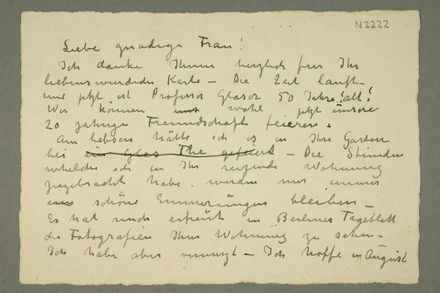 N2222
Liebe gnädige Frau!
Ich danke Ihnen herzlich für Ihr
liebenswürdige Karte – Die Zeit lauft
und jetzt ist Professor Glaser 50 Jahre alt!
Wir können uns wohl jetzt unsere
20 jahrige Freundschaft feieren.
Am liebsten hätte ich es in Ihre Garden
bei ein Glas The gefeiert – Die Stunden
welche ich in Ihr reizende Wohnung
zugebracht habe werden mir immer
schöne Emmerungen bleiben –
Es hat mich erfreut in Berliner Tageblatt
die Fotografien Ihre Wohnung zu sehen –
Ich habe aber – Ich hoffe in August